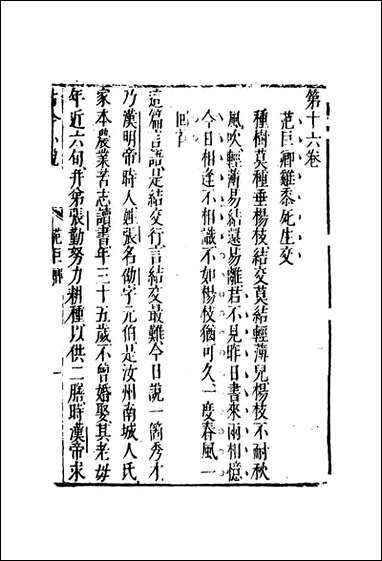 第十六卷
范巨卿雞黍死生交
種樹莫種垂楊枝結交莫結輕薄兒楊枝不耐秋
風吹輕薄易結還易離君不見昨日書來兩相憶
今日相逢不相識不如楊枝猶可久一度春風一
回首
這篇言語是結交行言結交最難今日說一箇秀才
乃漢明帝時人姓張名劭字元伯是汝州南城人氏
家本農業苦志讀書年三十五歲不曾婚娶其老母
年近六旬幷弟張勤努力耕種以供二膳時漢帝求
古今小說
范巨卿
一